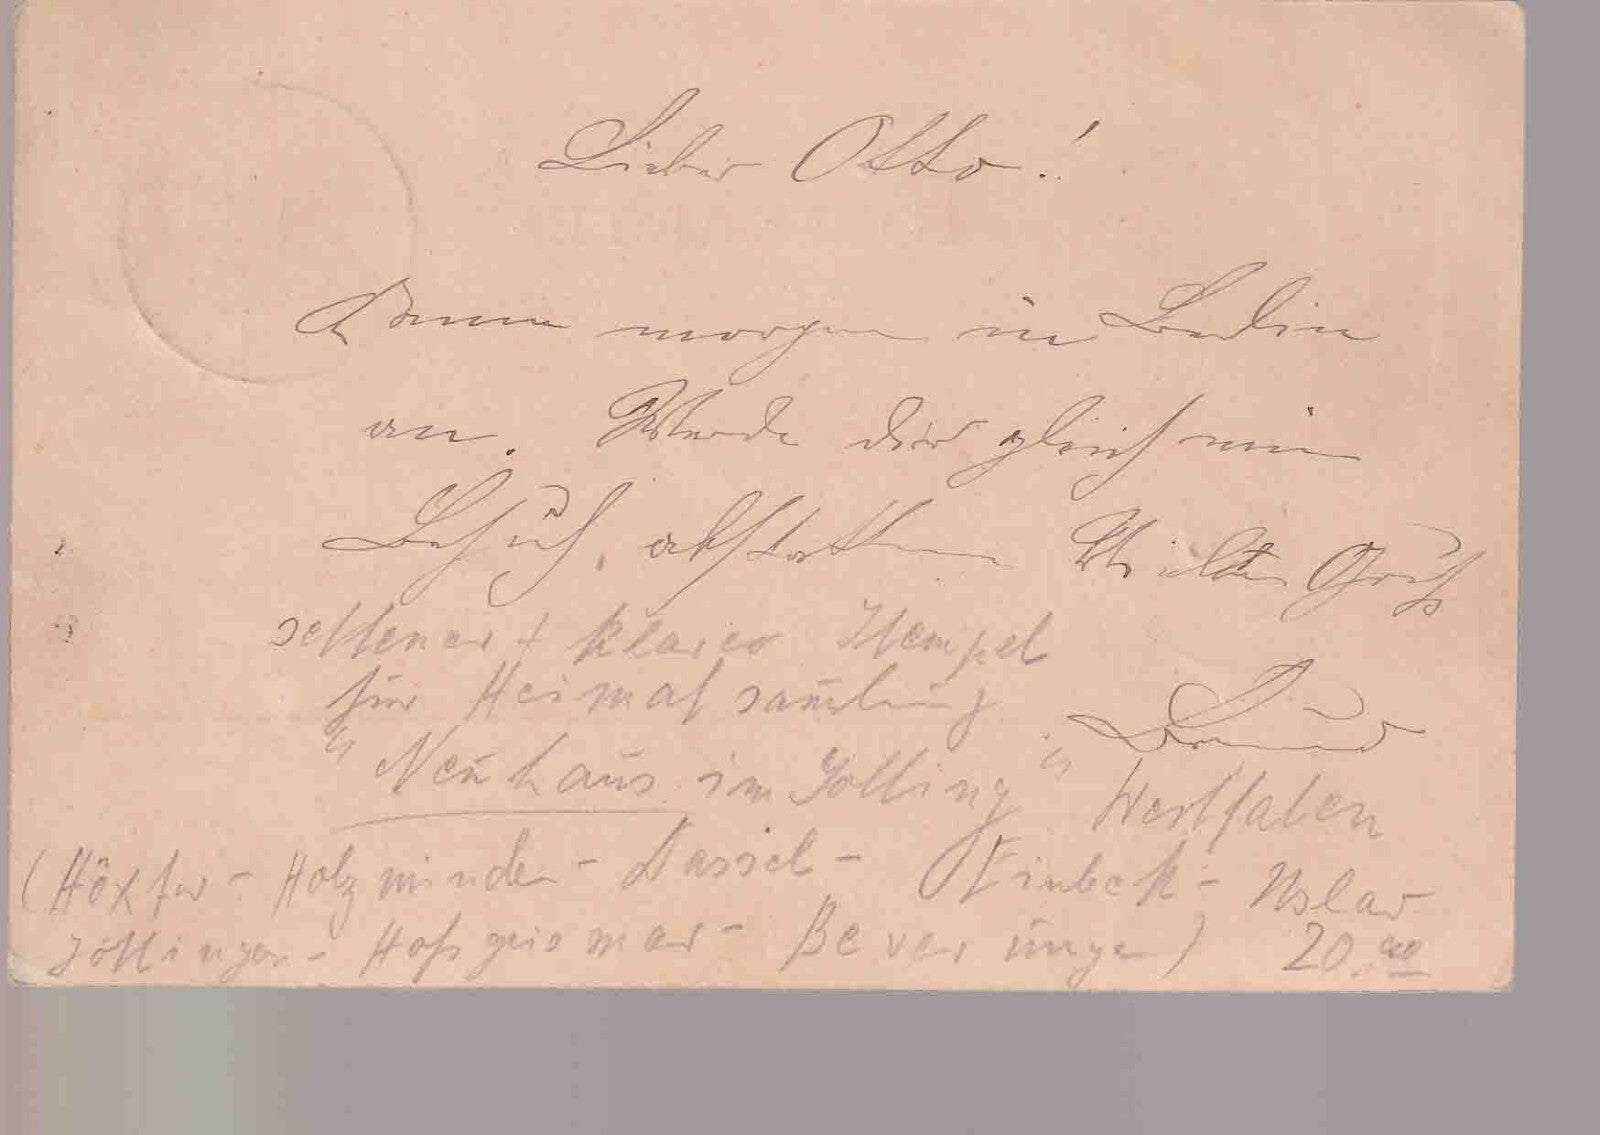 Lieber Otto!
Komme morgen in Berlin
an. Werde dir gleich mein
Besuch abstatten Vielen Gruß
seltener + klarer Stempel
für Heimatsamlung
"Neuhaus im Sölling" Westfalen
(Höxter - Holzminden - Dassel - Einbeck - Uslar
Göttingen - Hofgeismar - Beverungen) 20.00